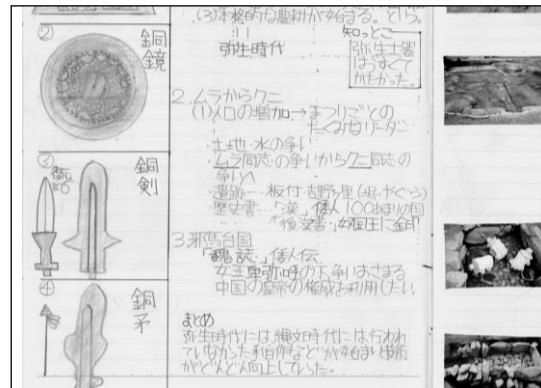 ②
銅鏡
③
銅剣
④
銅矛
(3)本格的な農耕が始まる。
弥生時代
知っとこ
弥生土器
はうすくて
かたかった。
2.ムラからクニ
(1)人口の増加→まつりごとの
たくみなリーダー
・土地・水の争い
・ムラ同志の争いからクニ同志の
争いへ
・遺跡…板付・吉野ヶ里(堀・やぐら)
歴史書…「漢」倭人100あまりの国
「後漢書」
3.邪馬台国
「魏誌」倭人伝
女王卑弥呼の下、争いおさまる
中国の皇帝の権威を利用したい
まとめ
弥生時代には縄文時代には行われ
ていなかった稲作などが始まり技術
がどんどん向上していった。